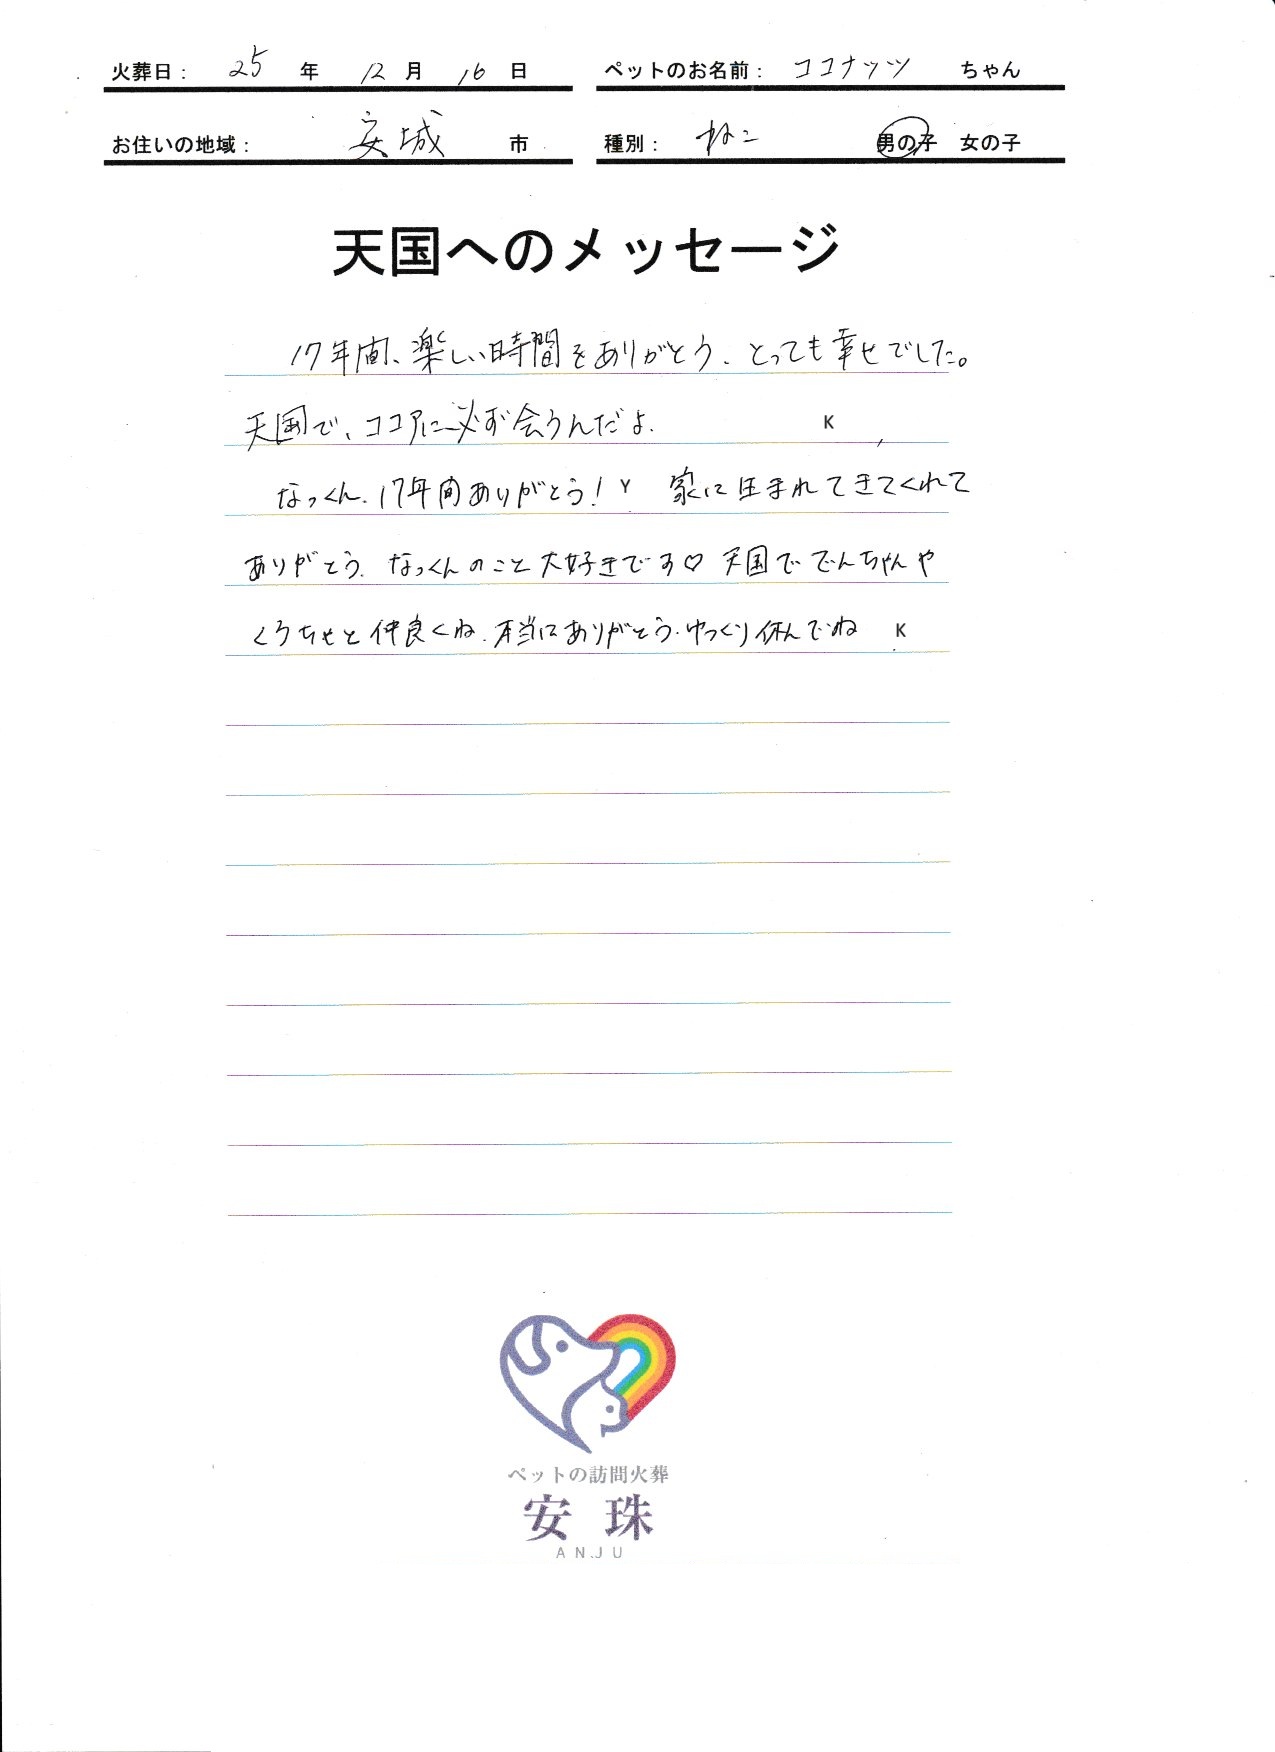 火葬日： 25 年 12 月 16 日 ペットのお名前： ココナッツ ちゃん
お住いの地域： 安城 市 種別： ねこ 男の子 女の子
天国へのメッセージ
17年間、楽しい時間をありがとう、とっても幸せでした。
天国で、ココアに必ず会うんだよ. K
なっくん、17年間ありがとう! Y 家に生まれてきてくれて
ありがとう. なっくんのこと大好きです♡ 天国ででんちゃんや
くろちゃと仲良くね. 本当にありがとう.ゆっくり休んでね K
ペットの訪問火葬
安珠
ANJU